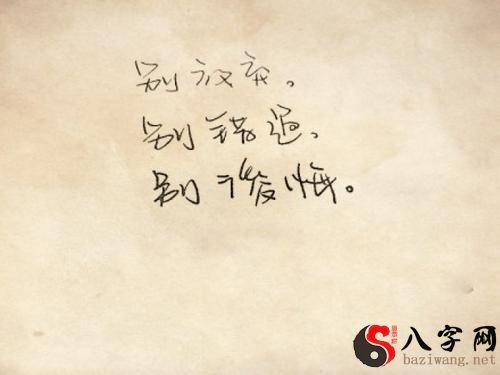 别放弃。
别错过。
别後悔。
八字网
baziwang.net